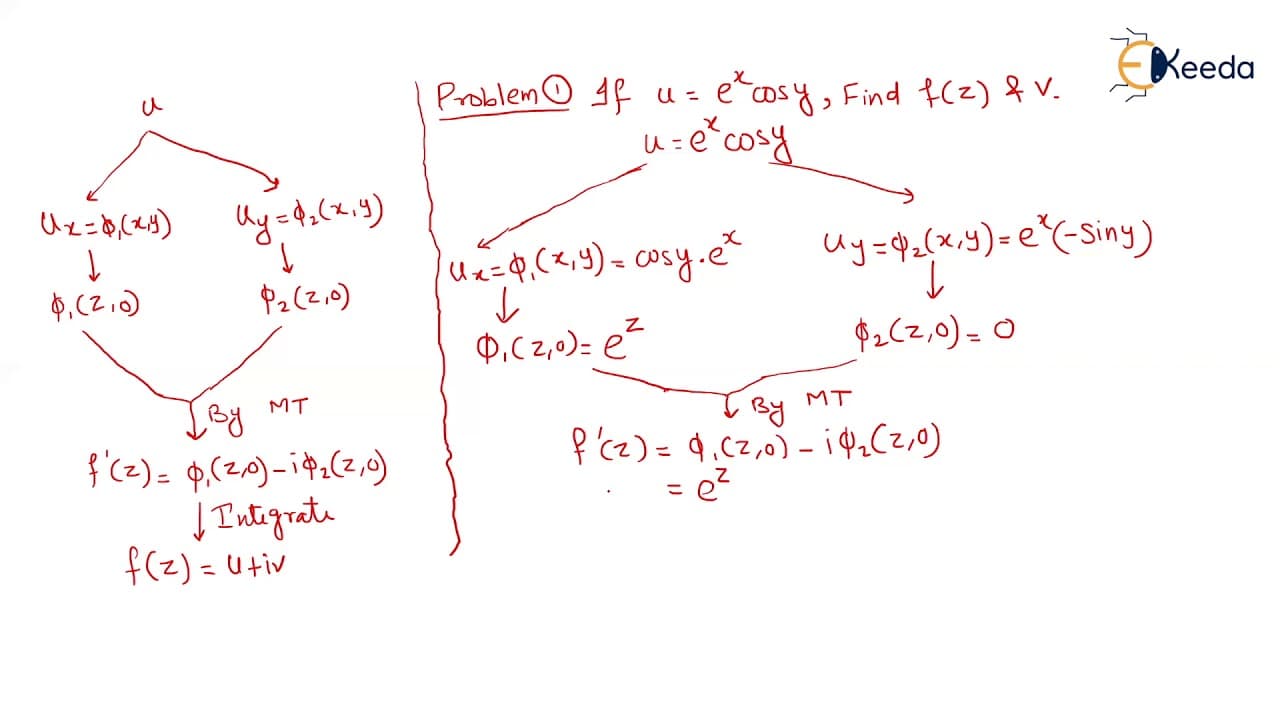 EKeeda
u
u_x = ϕ₁(x,y)
u_y = ϕ₂(x,y)
ϕ₁(z,0)
ϕ₂(z,0)
By MT
f'(z) = ϕ₁(z,0) - iϕ₂(z,0)
Integrate
f(z) = u+iv
Problem ① If u = e^x cosy, Find f(z) & v.
u = e^x cosy
u_x = ϕ₁(x,y) = cosy·e^x
u_y = ϕ₂(x,y) = e^x(-siny)
ϕ₁(z,0) = e^z
ϕ₂(z,0) = 0
By MT
f'(z) = ϕ₁(z,0) - iϕ₂(z,0)
= e^z